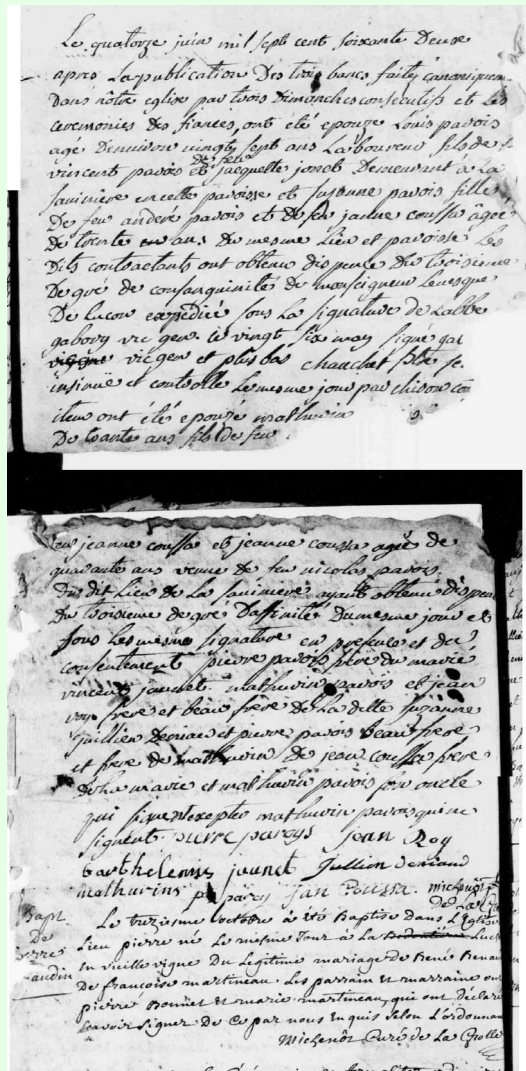 Le quatorze juin mil sept cent soixante Deux
apres La publication Des trois bancs faites canoniquem
Dans nôtre eglise par trois Dimanches consecutifs et Les
ceremonies des fiances, ont été epouze Louis pavois
age Denuiron vingt sept ans Laboureur fils de
vincent pavois et de feue jacquette jonet Demeurant à La
saminiere en cette paroisse et suzanne pavois fille
De feu andere pavois et De feu janne coussa âgée
de trente ans du mesme Lieu et paroisse Les
Dits contractants ont obtenu dispence Du troisieme
Degré de consanguinité de monseigneur Levesque
De Lucon expédiée sous La signature de Labbe
gaborÿ vic gen. le vingt six may signé gab
vic gen et plus bas chauchet
insinué et controlle Le mesme jour par chison con
item ont été epouzé mathurin
De trante ans fils de feu
feu jeanne coussa et jeanne coussa agée de
quarante ans veuve de feu nicolas pavois
Du dit Lieu de La saminiere ayant obtenu dispen
Du troisieme degré Daffinité Du mesme jour et
sous Les mesme signature en presence et du
consentement pierre pavois père du marié
vincent jaunet mathurin pavois et jean
roy frere et beau frere de La ditte suzanne
jullien Deniau et pierre pavois beau frere
et frere de mathurin De jean coussa frere
De La mariee et mathurin pavois son oncle
qui signent excepter mathurin pavois qui ne
signent. pierre paroys jean Roy
barthelemis jaunet Jullien deniaud
mathurins paroy Jan Coussa. michenot p
De La G
Bapt
De
pierre
audin
Le treziesme octobre à été Baptise dans L'église
Lieu pierre né Le mesme Jour à La
En vieille vigne Du Legitime mariage de René Renau
De francoise martineau. Les parrain et marraine on
pierre Bonnet et marie martineau, qui ont déclaré
scavoir signer De Ce par nous Enquis selon L'ordonnan
Michenot Curé de La Grolle